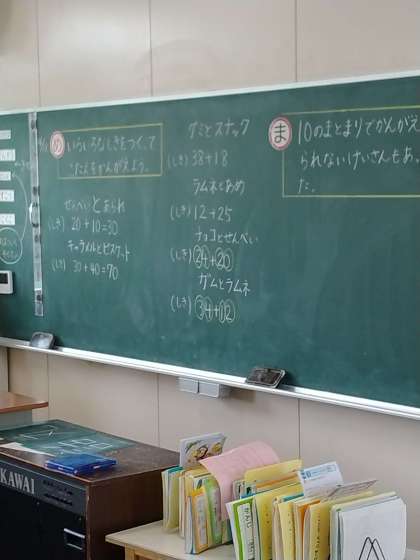 め
いろいろなしきをつくって
こたえをかんがえよう。
せんべいとあられ
(しき) 20+10=30
キャラメルとビスケット
(しき) 30+40=70
グミとスナック
(しき) 38+18
ラムネとあめ
(しき) 12+25
チョコとせんべい
(しき) 24+20
ガムとラムネ
(しき) 34+12
ま
10のまとまりでかんがえ
られないけいさんもあっ
た。
KAWAI